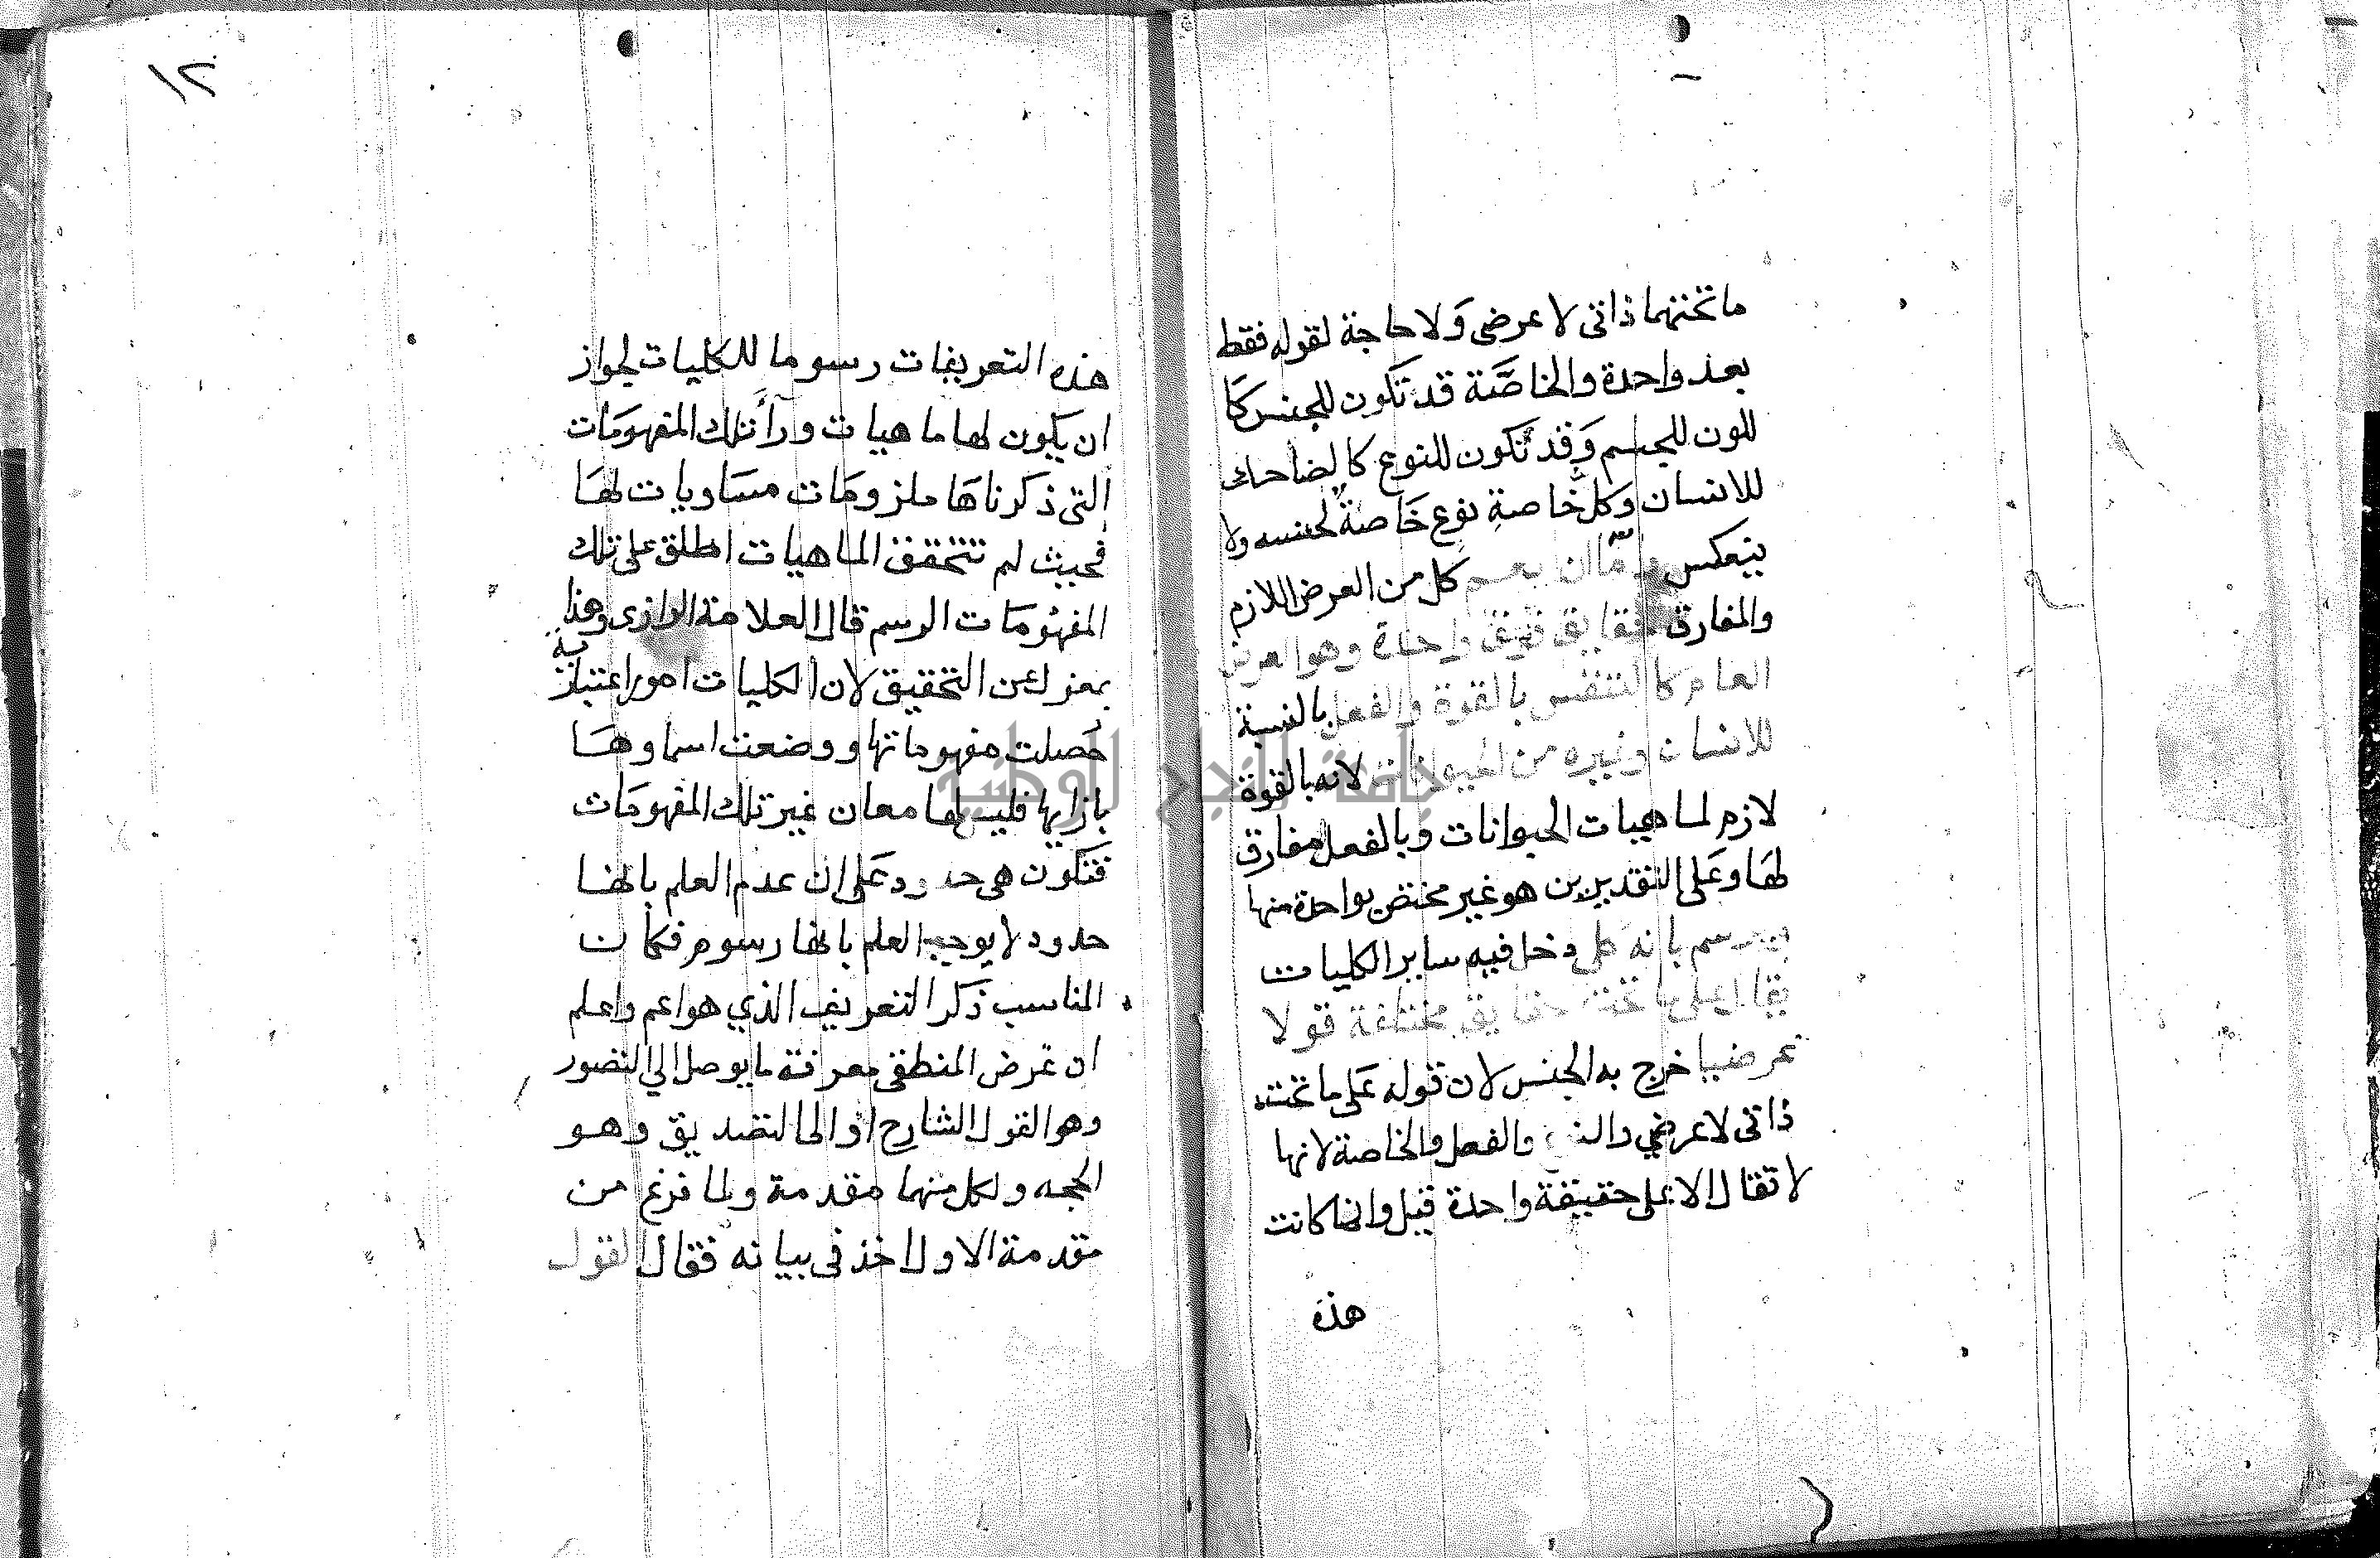 ما تحتهما ذاتى لا عرضى وَلا حاجة لقوله فقط
بعد واحدة والخاصَّة قد تكون للجنس كَا
للون للجسم وَقد تكون للنوع كا لضاحك
للانسان وكل خَاصةِ نوع خَاصةٌ لجنسه ولا
ينعكس وامّا ان يعم كل من العرض اللازم
والمفارق حقايق فوق واحدة وهو العرض
العام كا لمتنفس بالقوة والفعل بالنسبة
للانسان وغيره من الحيوانات لانه بالقوة
لازم لماهيات الحيوانات وبالفعل مفارق
لهَا وعَلى التقديرين هو غير مختص بواحدة منها
ويرسم بانه كلى دخل فيه ساير الكليات
يقال على ما تحت حقايق مختلفة قولا
عرضيا خرج به الجنس لان قوله عَلى ما تحته
ذاتى لا عرضي والنوع والفصل والخاصة لانها
لا تقال الا على حقيقة واحدة قيل وانما كانت
هذه
١٢
هذه التعريفات رسوما للكليات لجواز
ان يكون لها ماهيات ورأ تلك المفهومَات
التى ذكرناهَا ملزومَات مسَاويات لهَا
فحيث لم تتحقق الماهيات اطلق على تلك
المفهومَات الرسم قال العلامة الرازى وهذا
بمعزل عن التحقيق لان الكليات امور اعتبارية
حَصلت مفهوماتها ووضعت اسماوهَا
بازايها فليس لها معان غير تلك المفهومَات
فتكون هى حدود عَلى ان عدم العلم بانها
حدود لا يوجب العلم بانها رسوم فكان
المناسب ذكر التعريف الذي هو اعم واعلم
ان غرض المنطقى معرفة ما يوصل الي التصور
وهو القول الشارح او الى التصديق وهو
الحجه ولكل منهما مقدمة ولما فرغ من
مقدمة الاول اخذ فى بيانه فقال القول
جامعة النجاح الوطنية